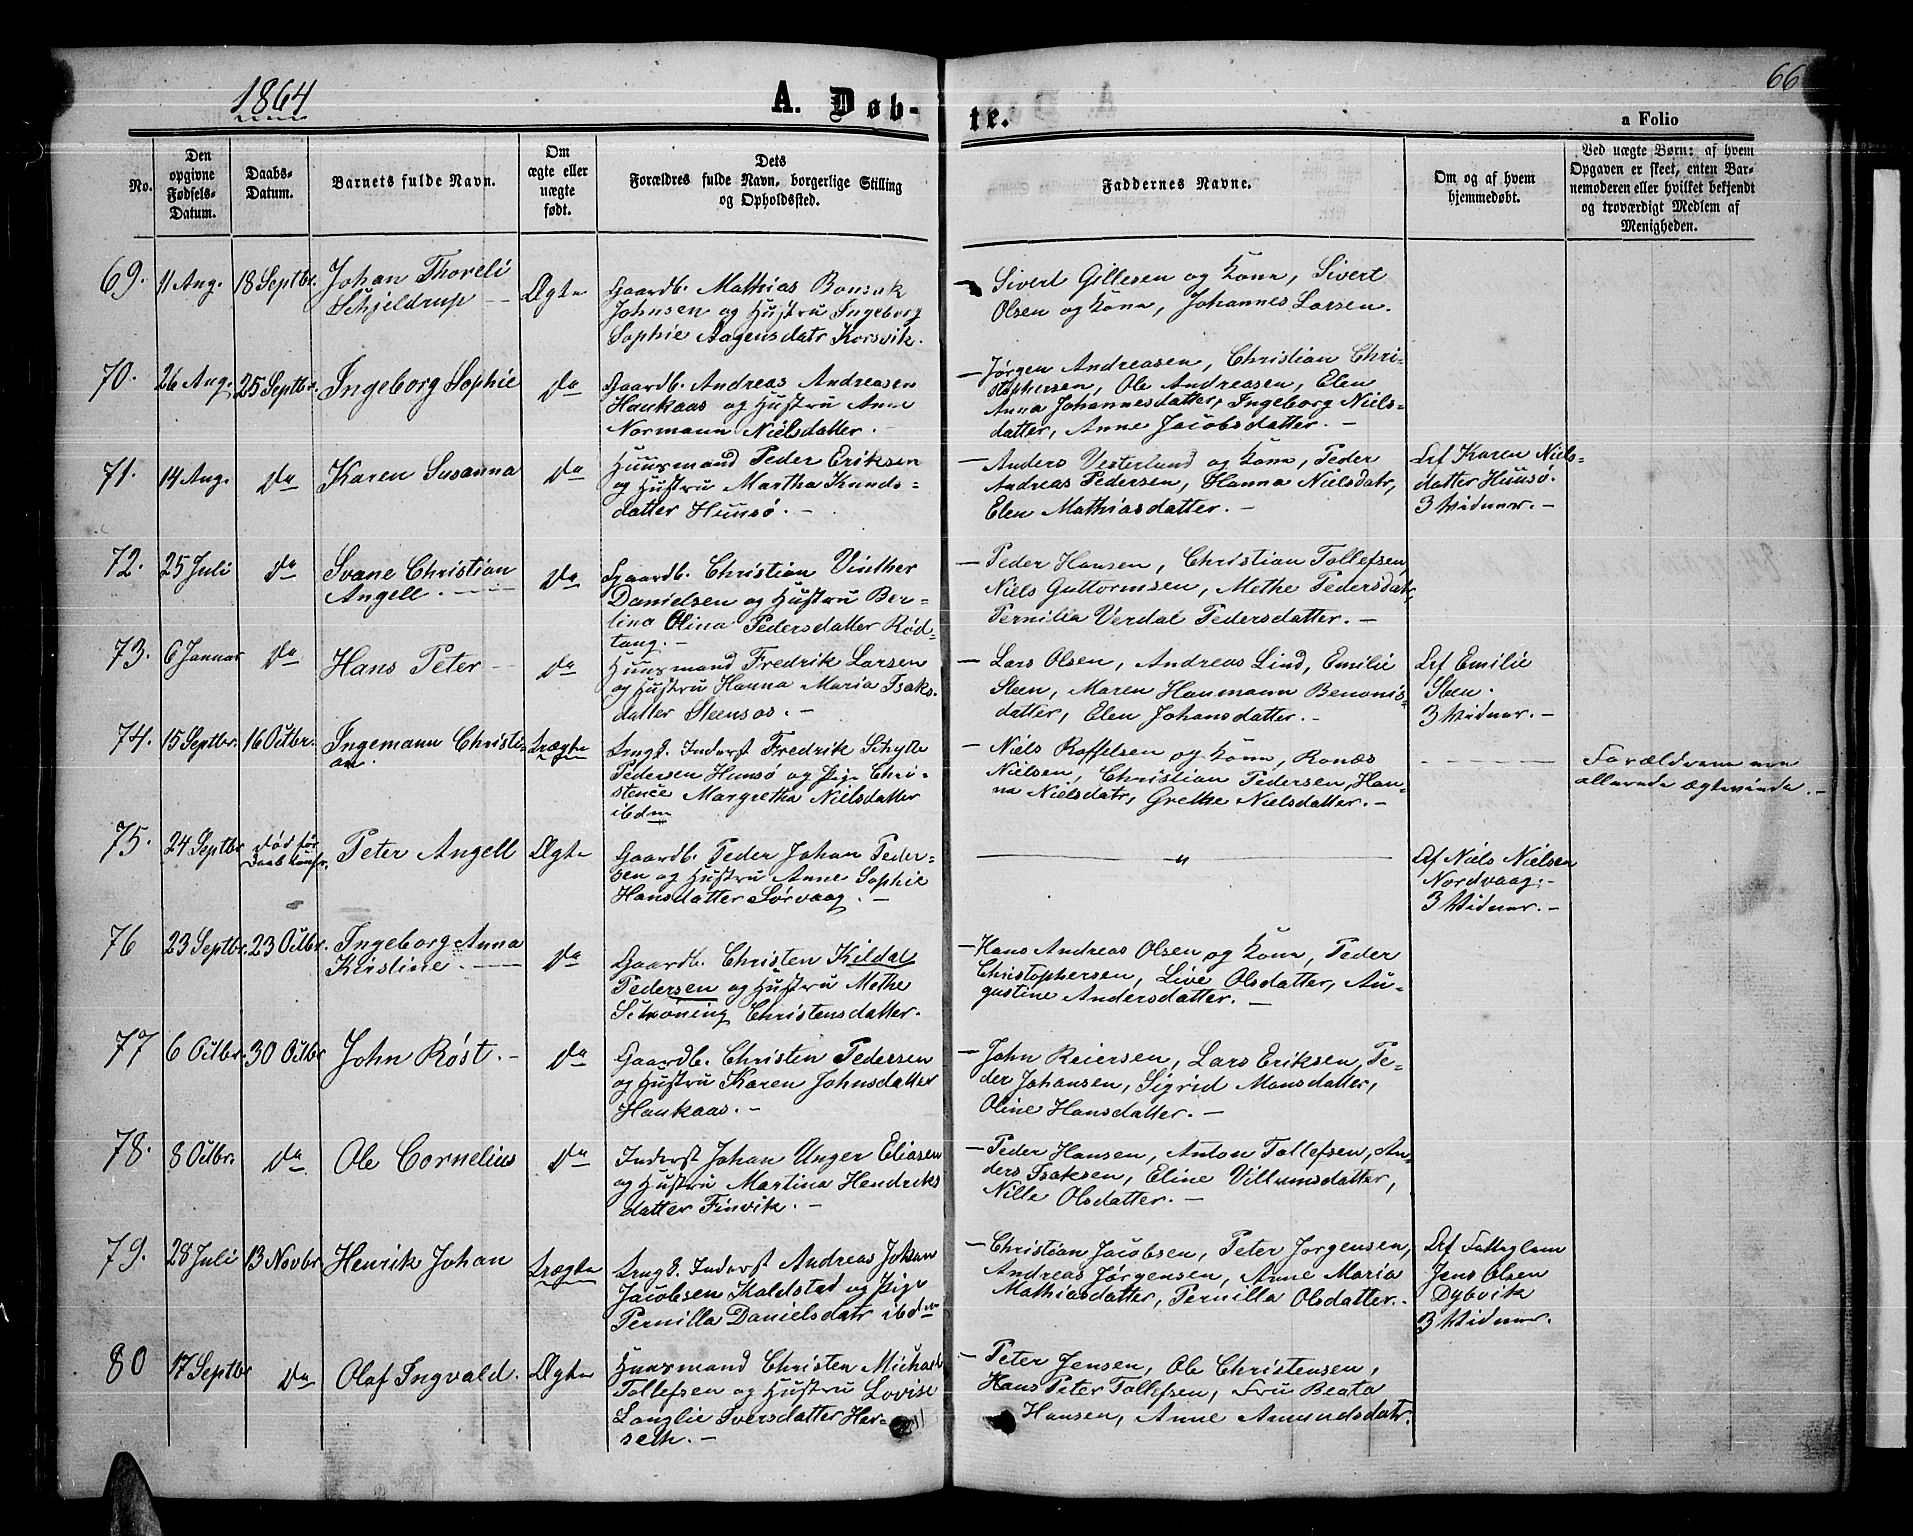 1864
66
A. Døb-
te.
a Folio
No.
Den
opgivne
Fødsels-
Datum.
Daabs-
Datum.
Barnets fulde Navn.
Om
ægte eller
uægte
født.
Dets
Forældres fulde Navn, borgerlige Stilling
og Opholdssted.
Faddernes Navne.
Om og af hvem
hjemmedøbt.
Ved uægte Børn: af hvem
Opgaven er skeet, enten Bar-
nemoderen eller hvilket bekjendt
og troværdigt Medlem af
Menigheden.
69. 11 Aug. 18 Septbr. Johan Thoreli
Schjeldrup
Ægte
Gaardb. Mathias Bonsak
Johnsen og Hustru Ingeborg
Sophie Aagensdatr Korsvik.
Sivert Gillesen og Kone, Sivert
Olsen og Kone, Johannes Larsen.
70. 26 Aug. 25 Septbr. Ingeborg Sophie
Do
Gaardb. Andreas Andreasen
Haukaas og Hustru Ane
Normann Nielsdatter. –
– Jørgen Andreasen, Christian Chri-
stophersen, Ole Andreasen, Elen
Anna Johannesdatter, Ingeborg Niels-
datter, Anne Jacobsdatter. –
71. 14 Aug. Do Karen Susanna
Do
Huusmand Peder Eriksen
og Hustru Martha Knuds-
datter Hunsø. –
– Anders Vesterlund og Kone, Peder
Andreas Pedersen, Hanna Nielsdatr,
Elen Mathiasdatter. –
Af Karen Niels-
datter Hunsø.
3 Vidner. –
72. 25 Juli Do Svane Christian
Angell.
Do
Gaardb. Christian Vinther
Danielsen og Hustru Ber-
lina Olina Pedersdatter Rød-
tang. –
– Peder Hansen, Christian Tollefsen,
Niels Guttormsen, Methe Pedersdatr,
Pernilla Verdal Pedersdatter. –
73. 6 Januar Do Hans Peter
Do
Huusmand Fredrik Larsen
og Hustru Hanna Maria Isaks-
datter Steensos. –
– Lars Olsen, Andreas Lind, Emilie
Steen, Maren Haumann Benonis-
datter, Elen Johansdatter. –
Af Emilie
Steen.
3 Vidner. –
74. 15 Septbr. 16 Octbr. Ingemann Christi-
an.
Uægte
Ungk. Inderst Fredrik Schytte
Pedersen Hunsø og Pige Chri-
stence Margretha Nielsdatter
ibdm
– Niels Roffelsen og Kone, Ronæs
Nielsen, Christian Pedersen, Han-
na Nielsdatr, Grethe Nielsdatter. –
Forældrene ere
allerede ægteviede. –
75. 24 Septbr. Død før
Daab Konfr.
Peter Angell
Ægte
Gaardb. Peder Johan Peder-
sen og Hustru Anne Sophie
Hansdatter Sørvaag. –
"
Af Niels Nielsen
Nordvaag. –
3 Vidner. –
76 23 Septbr. 23 Octbr. Ingeborg Anna
Kirstine.
Do
Gaardb. Christen Kildal
Pedersen og Hustru Methe
Schrøning Christensdatter.
– Hans Andreas Olsen og Kone, Peder
Christophersen, Live Olsdatter, Au-
gustine Andersdatter. –
77 6 Octbr. 30 Octbr John Røst. –
Do
Gaardb. Christen Pedersen
og Hustru Karen Johnsdatter
Haukaas. –
– John Reiersen, Lars Eriksen, Pe-
der Johansen, Sigrid Monsdatter,
Oline Hansdatter. –
78. 8 Octbr. Do Ole Cornelius
Do
Inderst Johan Unger Eliasen
og Hustru Martina Hendriks
datter Finvik. –
– Peder Hansen, Anton Tollefsen, An-
ders Isaksen, Eline Villumsdatter,
Nille Olsdatter. –
79. 28 Juli 13 Novbr Henrik Johan
Uægte
Ungk. Inderst Andreas Johan
Jacobsen Kaldstad og Pige
Pernilla Danielsdatr ibdm
– Christian Jacobsen, Peter Jørgensen,
Andreas Jørgensen, Anne Maria
Mathiasdatter, Pernilla Olsdatter. –
Af Fattiglem
Jens Olsen
Dybvik
3 Vidner.
80 17 Septbr Do Olaf Ingvald.
Ægte
Huusmand Christen Michael
Tollefsen og Hustru Lovise
Langlie Iversdatter Her-
seth. –
– Peter Jensen, Ole Christensen,
Hans Peter Tollefsen, Fru Beata
Hansen, Anne Amundsdatr.